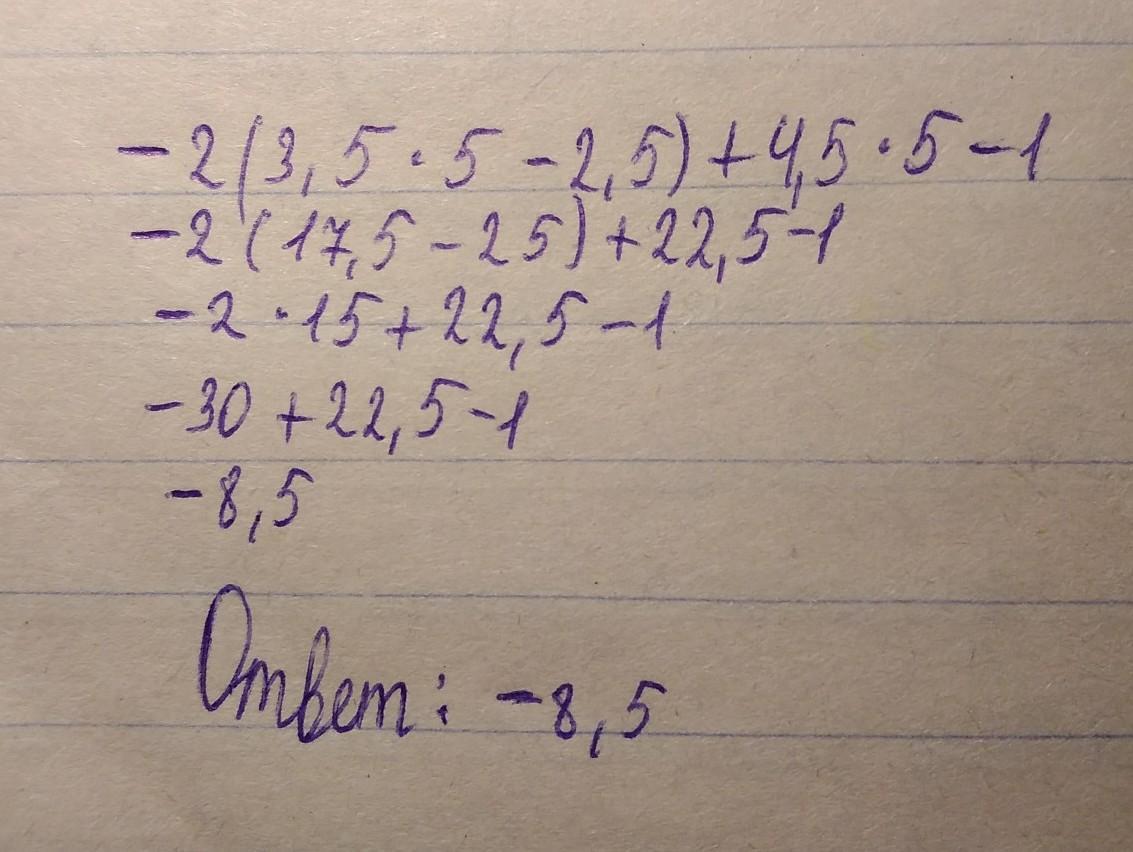 -2(3,5·5-2,5)+4,5·5-1
-2(17,5-25)+22,5-1
-2·15+22,5-1
-30+22,5-1
-8,5
Ответ: -8,5